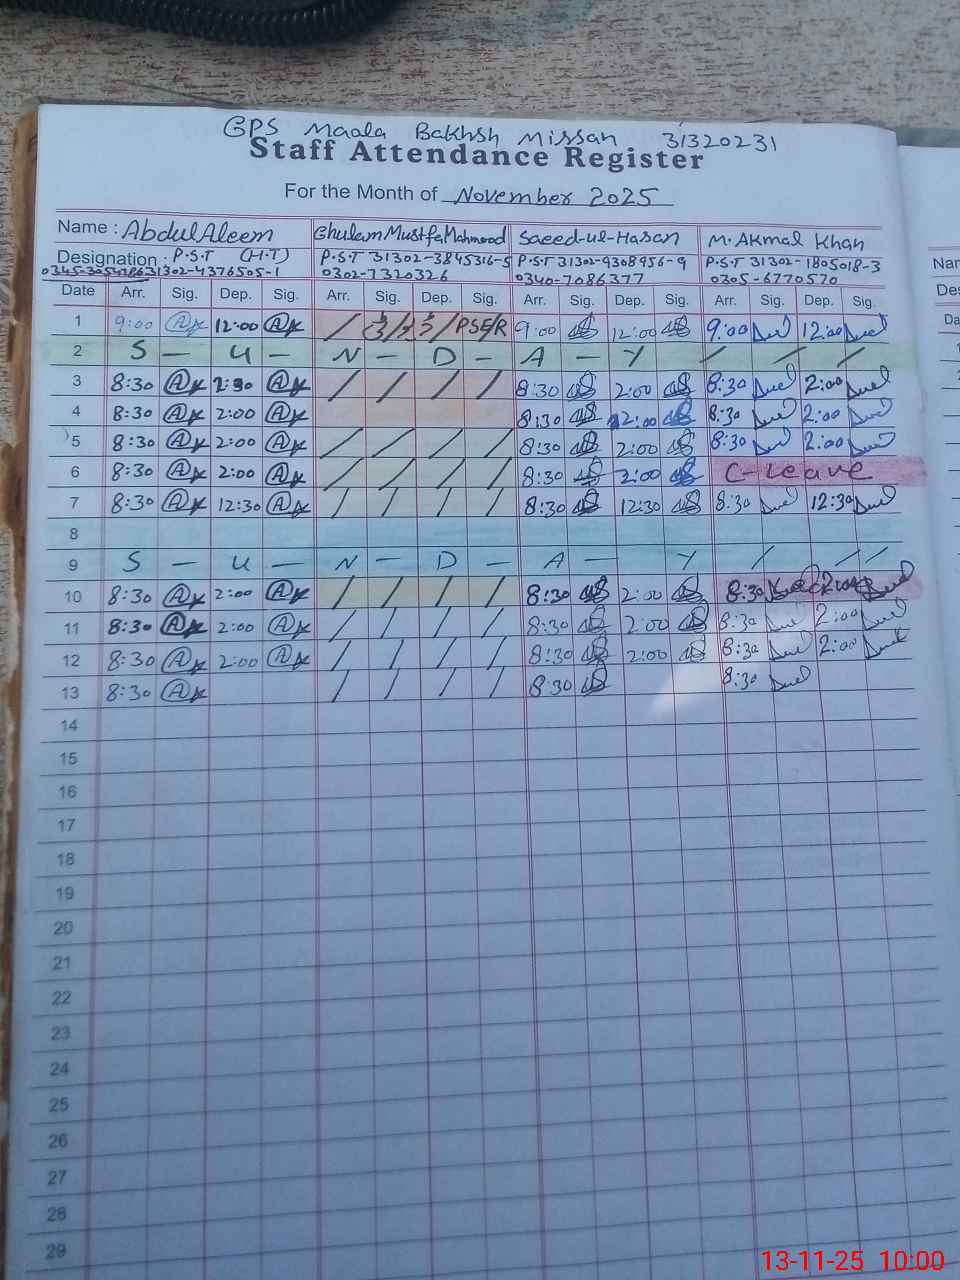 GPS Maala Bakhsh Missan 31320231
Staff Attendance Register
For the Month of November 2025
Name : Abdul Aleem Ghulam Mustfa Mahmood Saeed-ul-Hasan M. Akmal Khan
Designation : P.S.T (H.T) P.S.T 31302-3845316-5 P.S.T 31302-9308956-9 P.S.T 31302-1805018-3
31302-4376505-1 0302-7320326 0340-7086377 0305-6770570
Date Arr. Sig. Dep. Sig. Arr. Sig. Dep. Sig. Arr. Sig. Dep. Sig. Arr. Sig. Dep. Sig.
1 9:00 12:00 / PSER 9:00 12:00 9:00 12:00
2 S — U — N — D — A — Y / / /
3 8:30 2:30 / / / / 8:30 2:00 8:30 2:00
4 8:30 2:00 8:30 2:00 8:30 2:00
5 8:30 2:00 / / / / 8:30 2:00 8:30 2:00
6 8:30 2:00 / / / / 8:30 2:00 C-Leave
7 8:30 12:30 / / / / 8:30 12:30 8:30 12:30
8
9 S — U — N — D — A — Y / / /
10 8:30 2:00 / / / / 8:30 2:00 8:30 2:00
11 8:30 2:00 / / / / 8:30 2:00 8:30 2:00
12 8:30 2:00 / / / / 8:30 2:00 8:30 2:00
13 8:30 / / / / 8:30 8:30
14
15
16
17
18
19
20
21
22
23
24
25
26
27
28
29
13-11-25 10:00